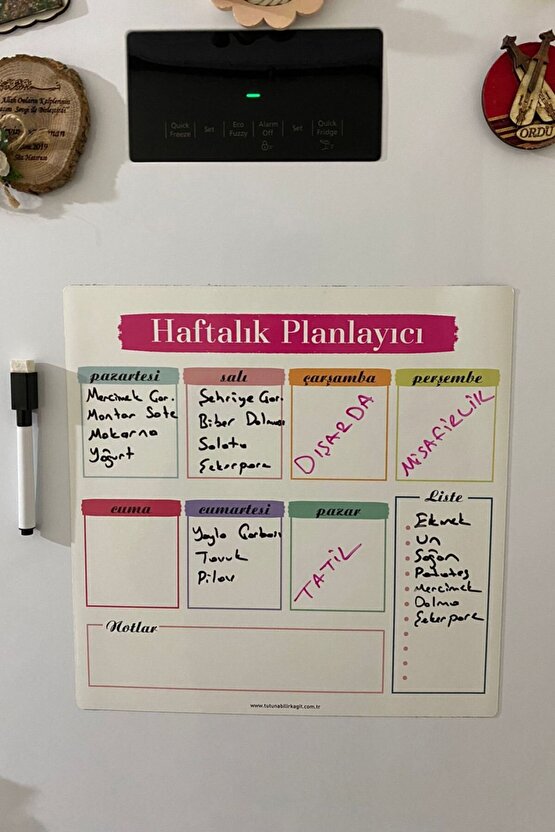 Allah Onların Kalplerinin
Arasını Sevgi ile Birleştirdi
2019
Söz Hatırası
Quick Freeze
Set
Eco Fuzzy
Alarm Off
Set
Quick Fridge
ORDU
Haftalık Planlayıcı
pazartesi
Mercimek Çor.
Mantar Sote
Makarna
Yoğurt
salı
Şehriye Çor.
Biber Dolması
Salata
Şekerpare
çarşamba
DIŞARDA
perşembe
MİSAFİRLİK
cuma
cumartesi
Yayla Çorbası
Tavuk
Pilav
pazar
TATİL
Liste
Ekmek
Un
Soğan
Patates
Mercimek
Dolma
Şekerpare
Notlar
www.tutunabilirkagit.com.tr